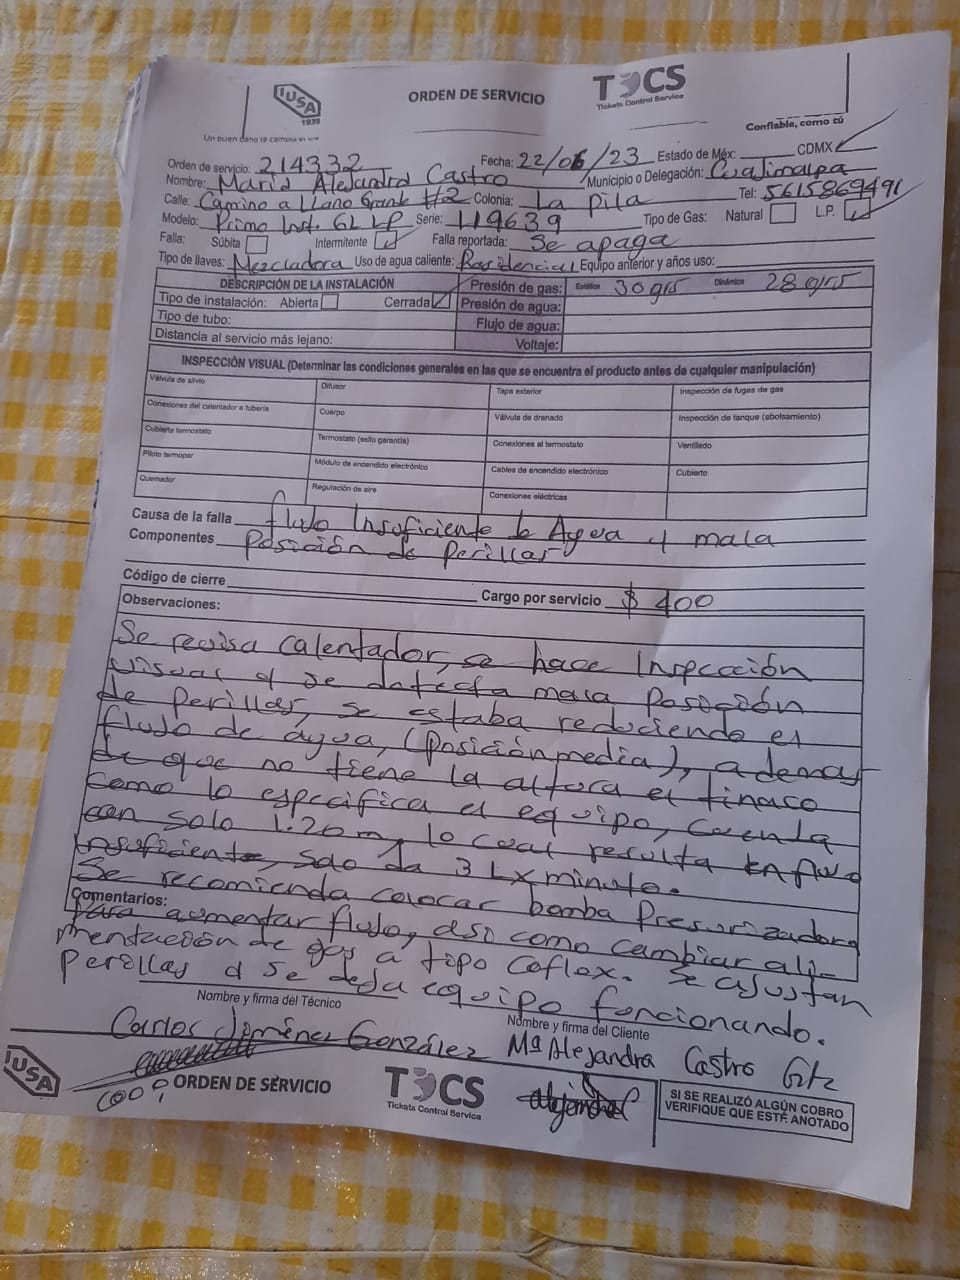 IUSA
1939
Un buen baño te cambia el día
ORDEN DE SERVICIO
TOCS
Tickets Control Service
Confiable, como tú
Orden de servicio: 214332 Fecha: 22/06/23 Estado de Méx: CDMX ✓
Nombre: Maria Alejandra Castro Municipio o Delegación: Cuajimalpa
Calle: Camino a Llano Grande #2 Colonia: La Pila Tel: 5615869491
Modelo: Primo Inst. 6L LP Serie: 119639 Tipo de Gas: Natural L.P. ✓
Falla: Súbita Intermitente ✓ Falla reportada: Se apaga
Tipo de llaves: Mezcladora Uso de agua caliente: Residencial Equipo anterior y años uso:
DESCRIPCIÓN DE LA INSTALACIÓN Presión de gas: Estática 30 grs Dinámica 28 grs
Tipo de instalación: Abierta Cerrada ✓ Presión de agua:
Tipo de tubo: Flujo de agua:
Distancia al servicio más lejano: Voltaje:
INSPECCIÓN VISUAL (Determinar las condiciones generales en las que se encuentra el producto antes de cualquier manipulación)
Válvula de alivio Difusor Tapa exterior Inspección de fugas de gas
Conexiones del calentador a tubería Cuerpo Válvula de drenado Inspección de tanque (abolsamiento)
Cubierta termostato Termostato (sello garantía) Conexiones al termostato Ventilado
Piloto termopar Módulo de encendido electrónico Cables de encendido electrónico Cubierto
Quemador Regulación de aire Conexiones eléctricas
Causa de la falla flujo Insuficiente de Agua y mala
Componentes Posición de Perillas
Código de cierre Cargo por servicio $ 400
Observaciones:
Se revisa calentador, se hace Inspección
visual y se detecta mala Posición
de perillas, se estaba reduciendo el
flujo de agua, (Posición media), ademas
de que no tiene la altura el tinaco
como lo especifica el equipo, cuenta
con solo 1.20 m, lo cual resulta en flujo
Insuficiente, solo da 3 L x minuto.
Se recomienda colocar bomba Presurizadora
Comentarios:
para aumentar flujo, asi como cambiar ali-
mentación de gas a tipo Coflex. Se ajustan
perillas y se deja equipo funcionando.
Nombre y firma del Técnico
Nombre y firma del Cliente
Carlos Jiménez González Mª Alejandra Castro Gtz
IUSA
ORDEN DE SERVICIO
TOCS
Tickets Control Service
SI SE REALIZÓ ALGÚN COBRO
VERIFIQUE QUE ESTÉ ANOTADO